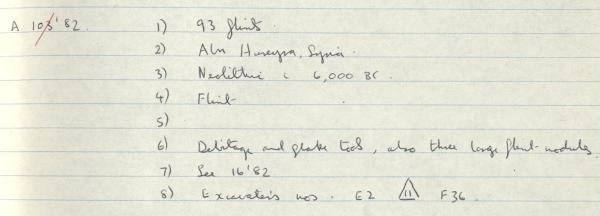 A 103'82. 1) 93 flints.
2) Abu Hureyra, Syria.
3) Neolithic c 6,000 BC.
4) Flint
5)
6) Debitage and flake tools, also three large flint nodules.
7) See 16'82
8) Excavator's nos. E2 11 F36.